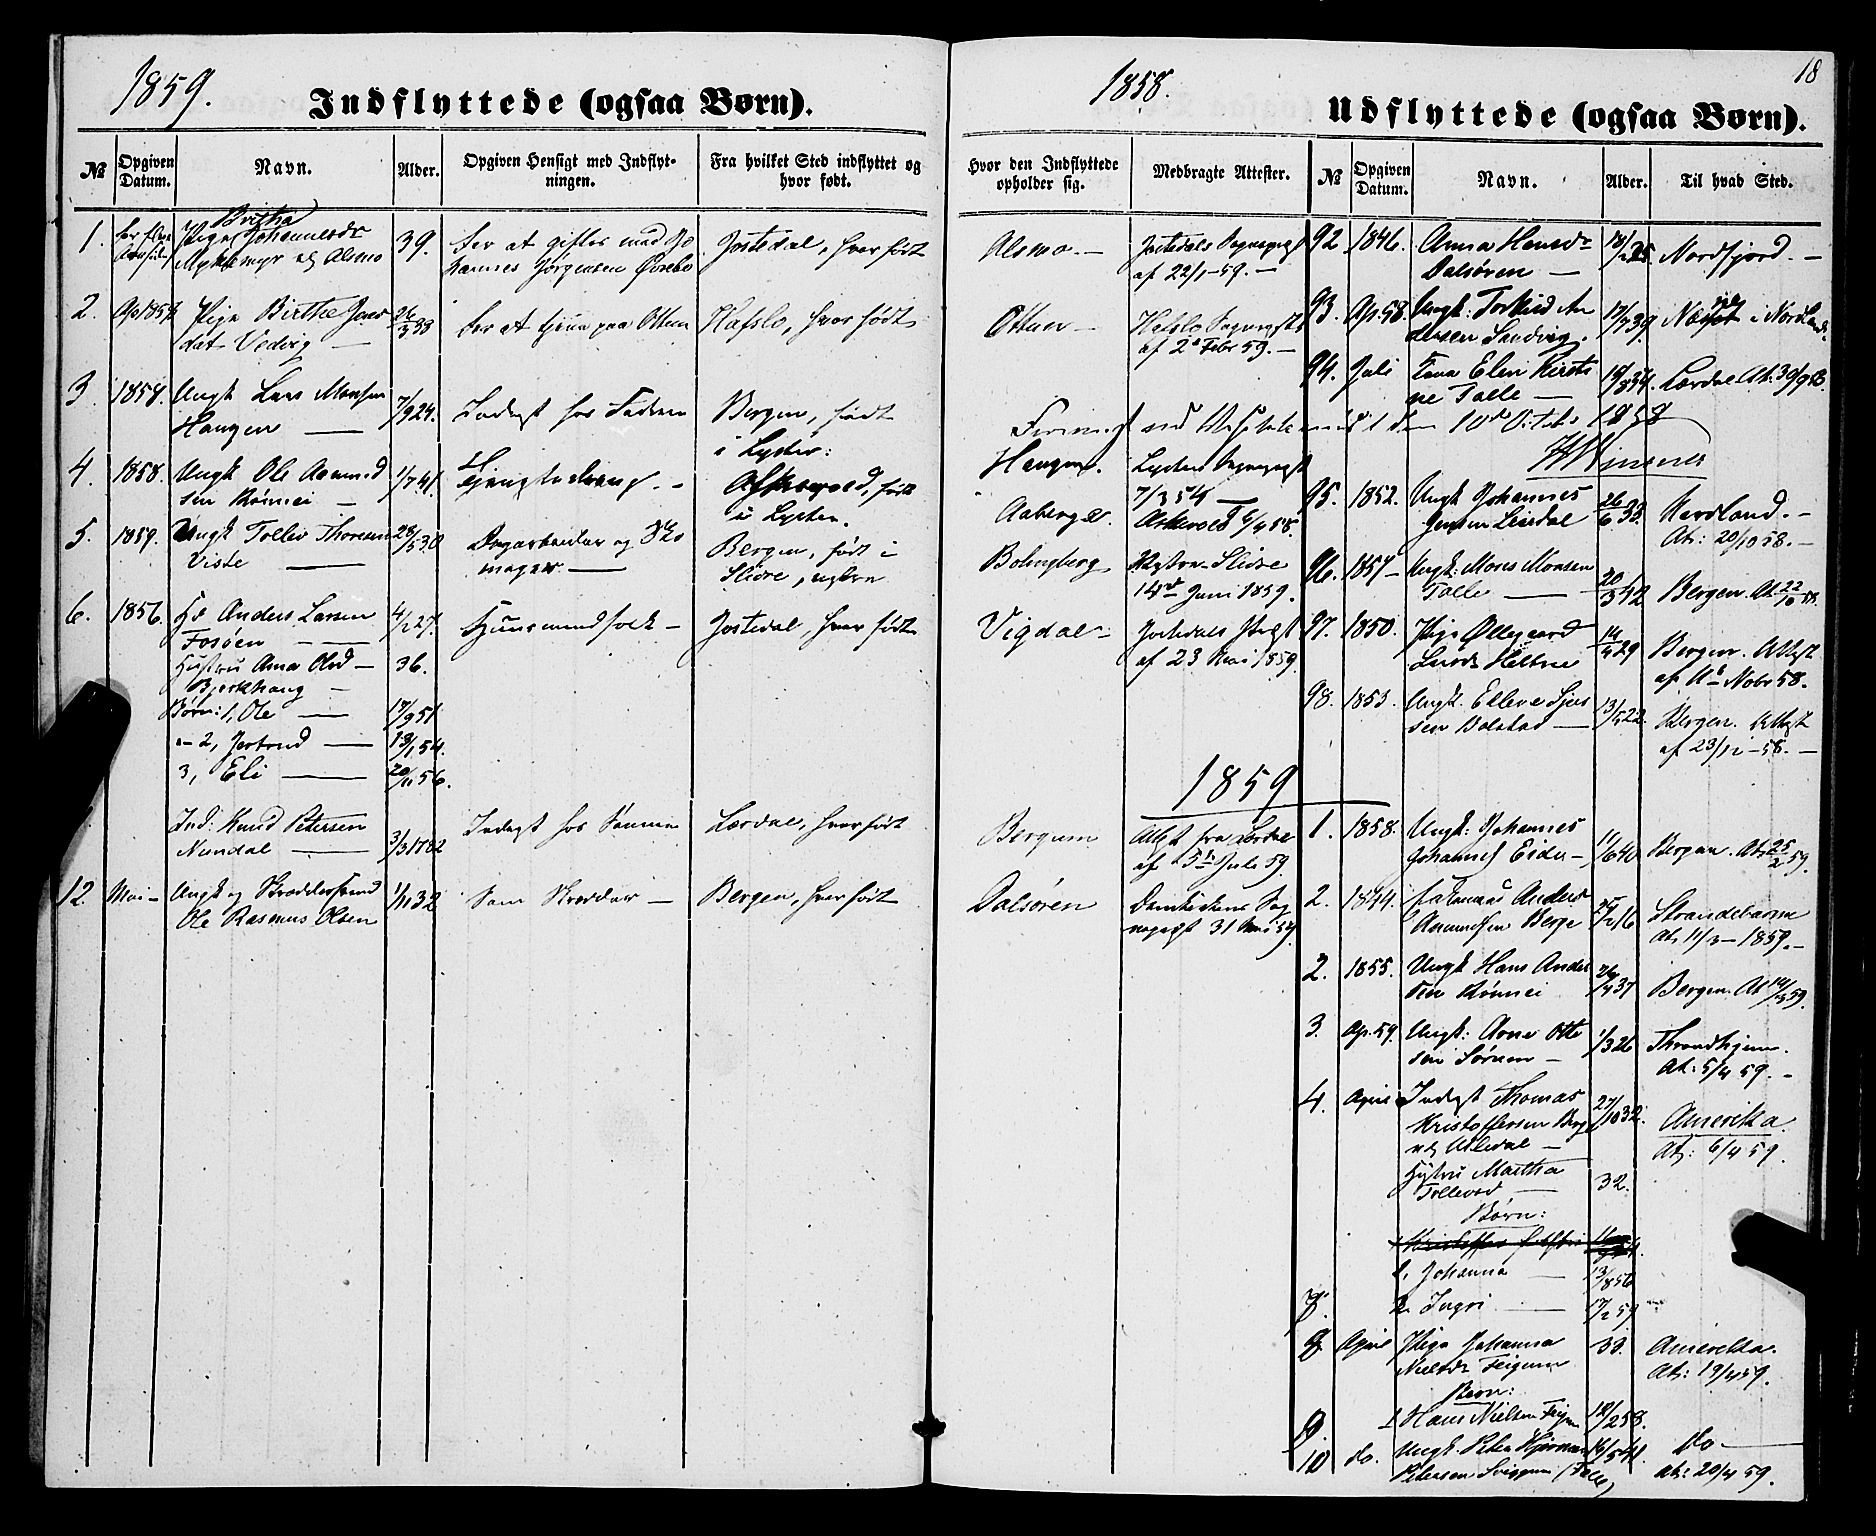 1859.
Indflyttede (ogsaa Børn).
№
Opgiven Datum.
Navn.
Alder.
Opgiven Hensigt med Indflyt-
ningen.
Fra hvilket Sted indflyttet og
hvor født.
1.
Pige Britha Johannesdr
Myklemyr og Alsmo
39.
for at giftes med Jo
hannes Jørgensen Øvrebø
Jostedal, hvor født
2.
Pige Birthe Jens
datr Vedvig —
26/3 33
for at tjene paa Ottum
Hafslo, hvor født
3.
1854.
Ungk Lars Monsen
Haugen —
7/9 24.
Indegst hos Faderen
Bergen, født
i Lyster:
4.
1858.
Ungk Ole Aamund
sen Rønnei —
1/7 41.
Askevold, født
i Lyster.
5.
1859.
Ungk Tollev Thoresen
Viste —
28/5 30
Dagarbeider og Sko
mager —
Bergen, født i
Slidre,
6.
1856.
Anders Larsen
Fosøen —
4/2 27.
Huusmandsfolk —
Jostedal, hvor født
Hustru Anna Olsd —
Bjørkhaug —
36.
Børn: 1, Ole —
17/9 51.
- 2, Jertrud —
13/1 54.
3, Eli —
20/11 56.
Ind: Knud Petersen
Nundal —
3/3 1782
Indegst hos Sønnen
Lærdal, hvor født
12.
Mai —
Ungk og Skreddersvend
Ole Rasmus Olsen
1/11 32
Som Skredder —
Bergen, hvor født
18
1858.
Udflyttede (ogsaa Børn).
Hvor den Indflyttede
opholder sig.
Medbragte Attester.
№
Opgiven Datum.
Navn.
Alder.
Til hvad Sted.
Alsmo —
Jostedals Sognepræst
af 22/1 - 59. —
92
1846.
Anna Hansdr
Dalsøren —
25.
Nordfjord. —
Ottum —
Hafslo Sognepræst
af 2d Febr 59. —
93.
Apr. 58.
Ungk: Torkild An
dersen Sandvig.
17/7 39.
i Nordlands.
94.
Juli
Kone Elen Kirsti
ne Talle —
19/8 34.
Lærdal At: 30/9 58.
10d Octobr 1858
Haugen.
Lysters Sognepræst
7/3 54 —
Aaberge.
Askevold 6/4 58.
95.
1852.
Ungk Johannes
Jensen Leirdal
26/6 33
Nordland. —
At: 20/10 58. —
Bolingberg
Vestre Slidre
14d Juni 1859.
96.
1857 —
Ungk: Mons Monsen
Talle —
20/3 42
Bergen. At 22/10 58.
Vigdal
Jostedals Præst
af 23 Mai 1859
97.
1850.
Pige Øllegaard
Larsdr Heltne
14/4 29
Bergen. Attest
af Nobr 58.
98.
1853.
Ungk. Elleve Sjur
sen Bolstad —
13/5 22.
Bergen. Attest
af 23/12 - 58. —
1859
Bergum
Attest fra Lærdal
af 5te Juli 59
1.
1858.
Ungk: Johannes
Johannes Eide —
11/6 40
Bergen. At: 25/2 59.
Dalsøren
Domkirkens Sog
nepræst 31 Mai 59.
2.
1844.
Anders
Amundsen Berge
16
Strandebarm
At: 11/3 — 1859. —
2.
1855.
Ungk Hans Ander
sen Rønnei
26/4 37
Bergen. At 59.
3.
Apr. 59.
Ungk: Arne Otte
sen Sørum —
1/3 26
Throndhjem.
At: 5/4 59. —
4.
April
Indegst Thomas
Kristoffersen Berg
og Uledal —
27/10 32.
Amerika.
At: 6/4 59.
Hustru Martha
Tollevsd —
32.
Børn:
1, Johanna —
13/8 56
2 Ingri —
17/2 59
7.
8
April
Pige Johanna
Nielsdr Feigum
33.
Amerika.
At: 19/4 59.
Børn:
9.
1 Hans Nielsen Feigum
2 58.
10
do.
Ungk Peter
Petersen Sviggum (Talle)
16/5 41.
Do —
At: 20/4 59.